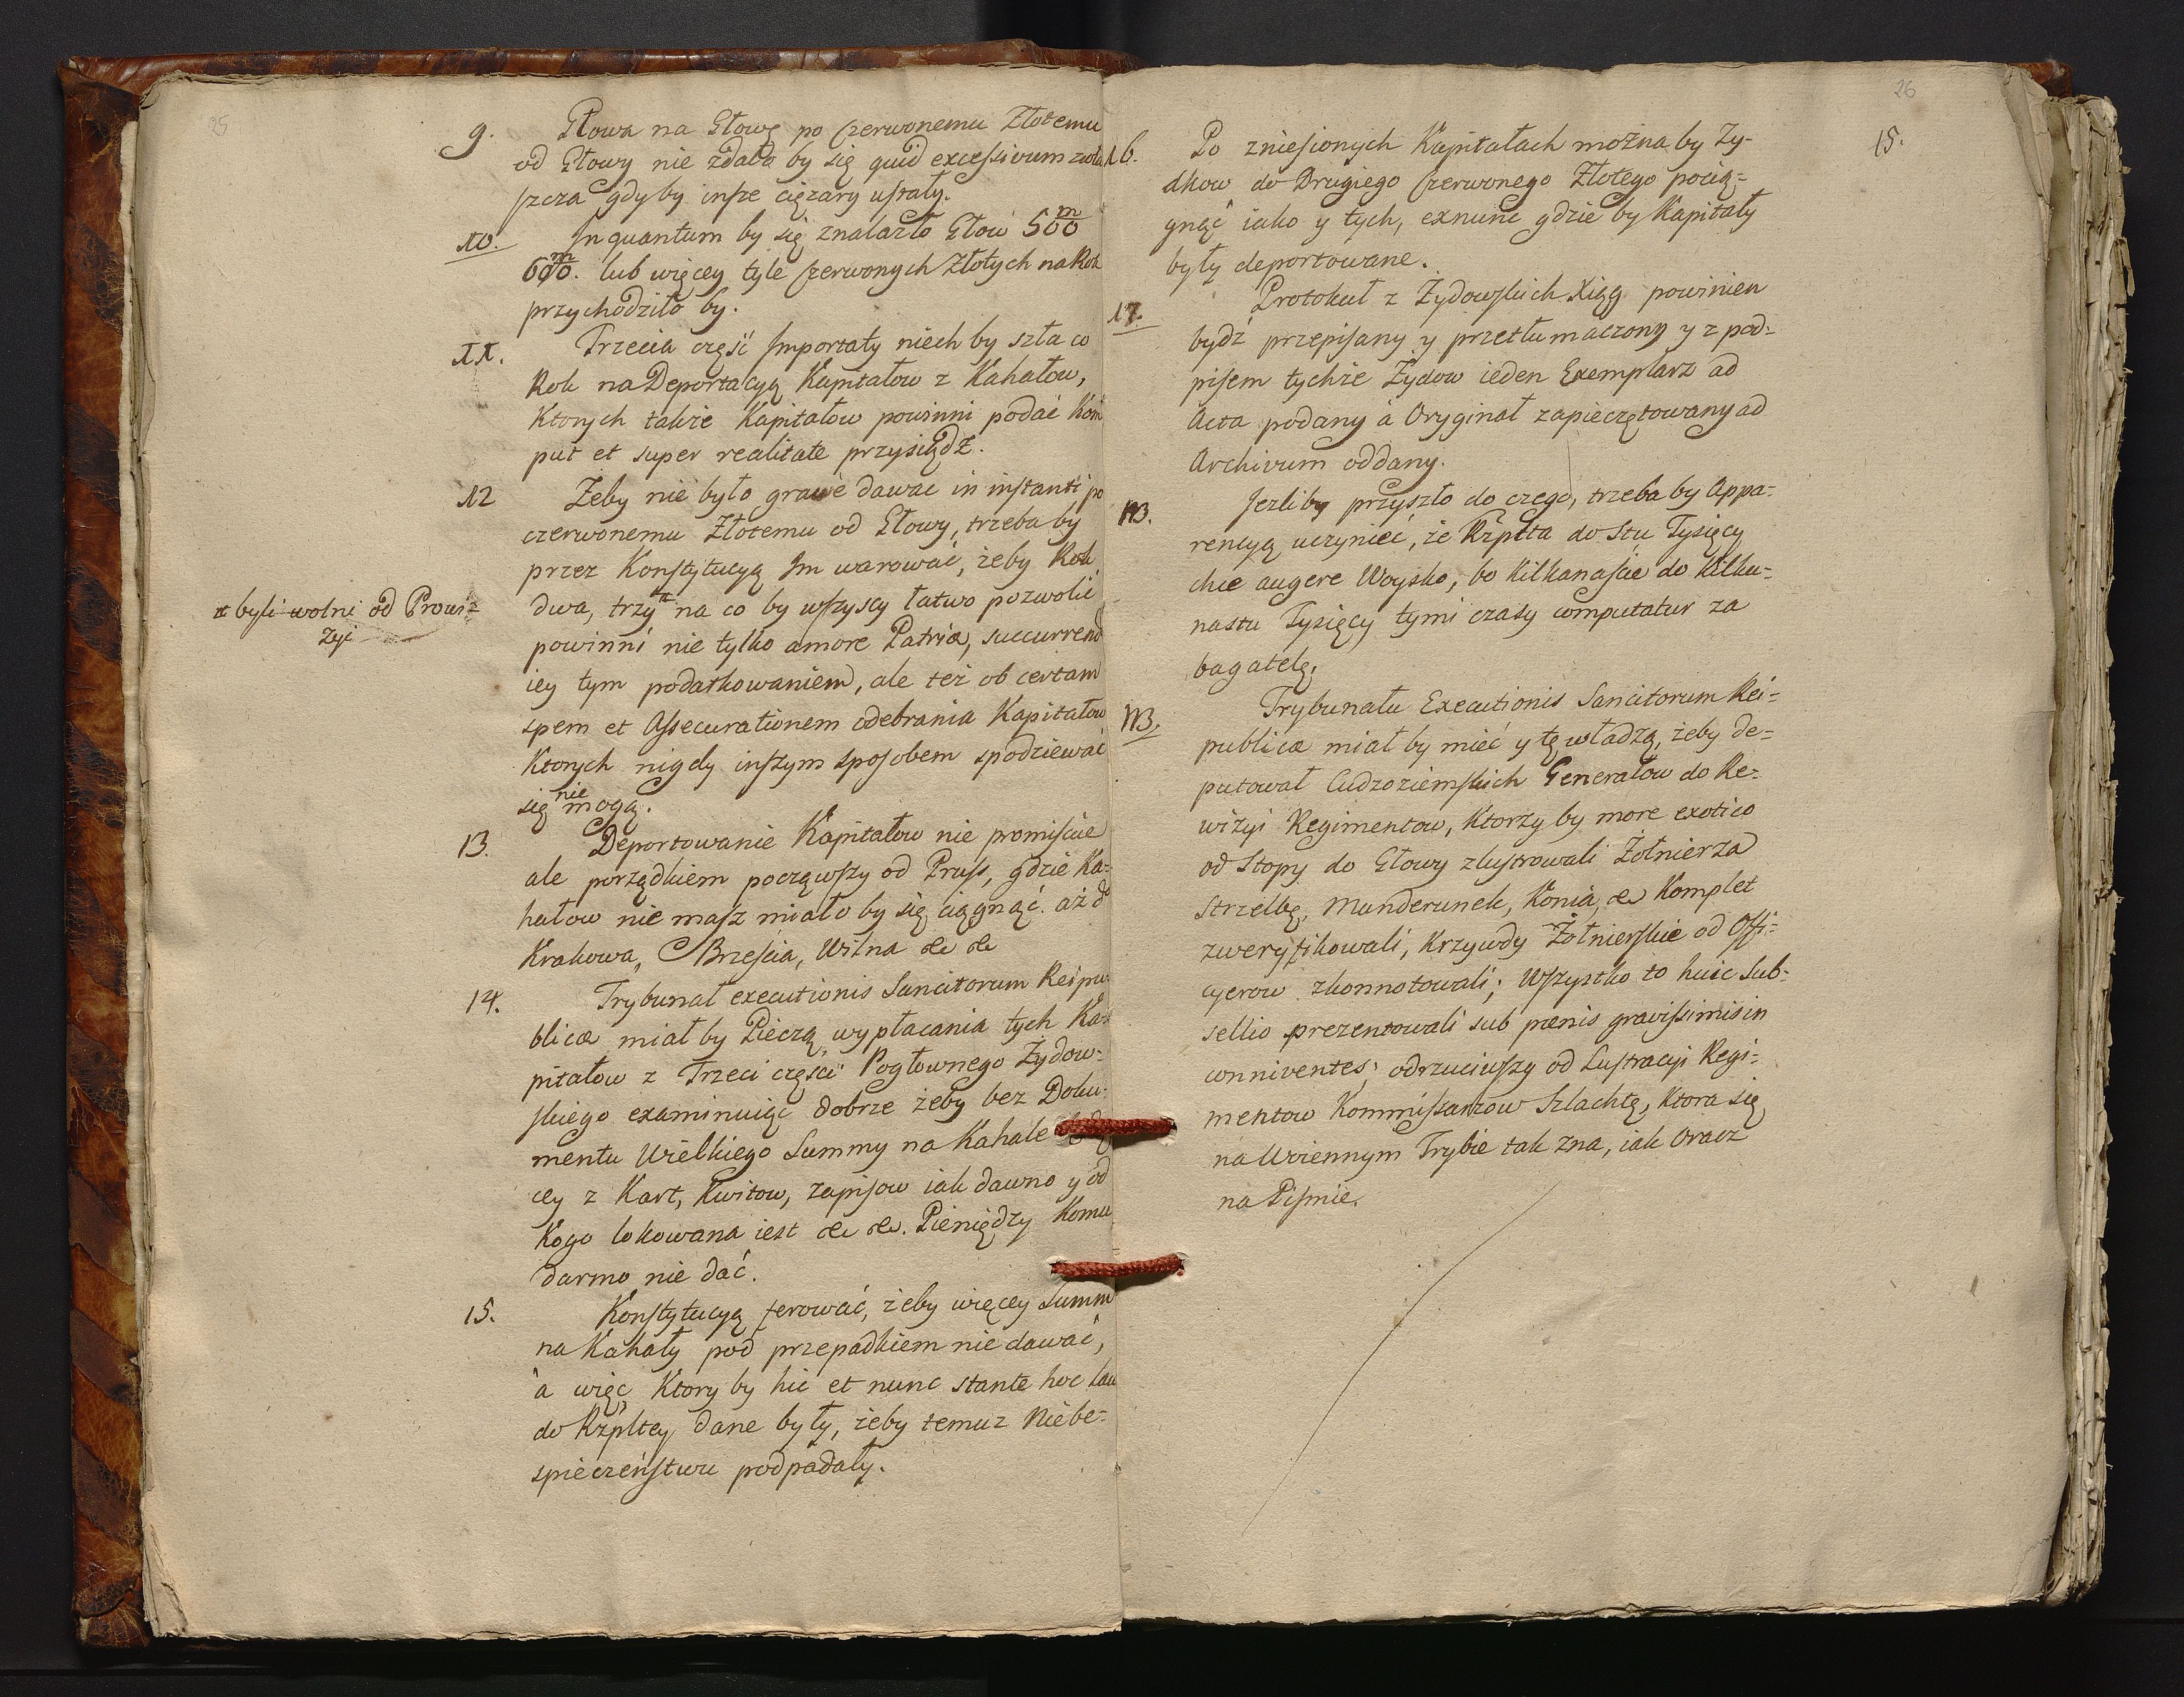 25
9. Głowa na Głowę po Czerwonemu Złotemu
od Głowy nie zdało by się quid excessivum zwła
szcza gdyby insze ciężary ustały.
10. Inquantum by się znalazło Głów 500 m
600 m. lub więcey tyle Czerwonych Złotych na Rok
przychodziło by.
11. Trzecia część Importaty niech by szła co
Rok na Deportacyą Kapitałow z Kahałow,
Ktorych także Kapitałow powinni podać Kom
put et super realitate przysiądz.
12 Zeby nie było grave dawac in instanti po
czerwonemu Złotemu od Głowy, trzeba by
przez Konstytucyą Im warować, żeby Rok
dwa, trzy x na co by wszyscy łatwo pozwolić
x byli wolni od Prowi=
zyi
powinni nie tylko amore Patriæ, succurrend
iey tym podatkowaniem, ale też ob certam
spem et Assecurationem odebrania Kapitałow
Ktorych nigdy inszym sposobem spodziewać
się nie mogą.
13. Deportowanie Kapitałow nie promiscue
ale porządkiem począwszy od Pruss, gdzie Ka=
hałow nie masz miało by się ciągnąć aż do
Krakowa, Brześcia, Wilna &c &c
14. Trybunał executionis Sancitorum Reipu=
blicæ miał by Pieczą wypłacania tych Ka=
pitałow z Trzeci części Pogłownego Zydow=
skiego examinuiąc dobrze żeby bez Doku=
mentu Wielkiego Summy na Kahale
cey z Kart, Kwitow, zapisow iak dawno y od
Kogo lokowana iest &c &c. Pieniędzy Komu
darmo nie dać.
15. Konstytucyą ferować, żeby więcey Summ
na Kahały pod przepadkiem nie dawać,
a więc Ktory by hic et nunc stante hoc Lau
do Rzpltey dane były, żeby temuz Niebe=
spieczeństwu podpadały.
26
15.
16. Po zniesionych Kapitałach można by Zy=
dkow do Drugiego Czerwonego Złotego pocią=
gnąć iako y tych, exnunc gdzie by Kapitały
były deportowane.
17. Protokuł z Zydowskich Xiąg powinien
bydź przepisany y przetłumaczony y z pod=
pisem tychże Żydow ieden Exemplarz ad
Acta podany a Oryginał zapieczętowany ad
Archivum oddany.
NB. Jezliby przyszło do czego, trzeba by Appa=
rencyą uczynieć, że Rzplta do Stu Tysięcy
chce augere Woysko, bo kilkanaście do kilku=
nastu Tysięcy tymi czasy computatur za
bagatelę.
NB. Trybunału Executionis Sancitorum Rei=
publicæ miał by mieć y tę władzą, żeby de=
putował Cudzoziemskich Generałow do Re=
wizyi Regimentow, Ktorzy by more exotico
od Stopy do Głowy zlustrowali Żołnierza
Strzelbę, Munderunek, Konia, &c Komplet
zweryfikowali, Krzywdy Żołnierskie od Offi=
cyerow zkonnotowali; Wszystko to huic Sub=
sellio prezentowali sub pœnis gravissimis in
conniventes; odrzuciwszy od Lustracyi Regi=
mentow Kommissarzow Szlachtę, Ktora się
na Woiennym Trybie tak zna, iak Oracz
na Piśmie.